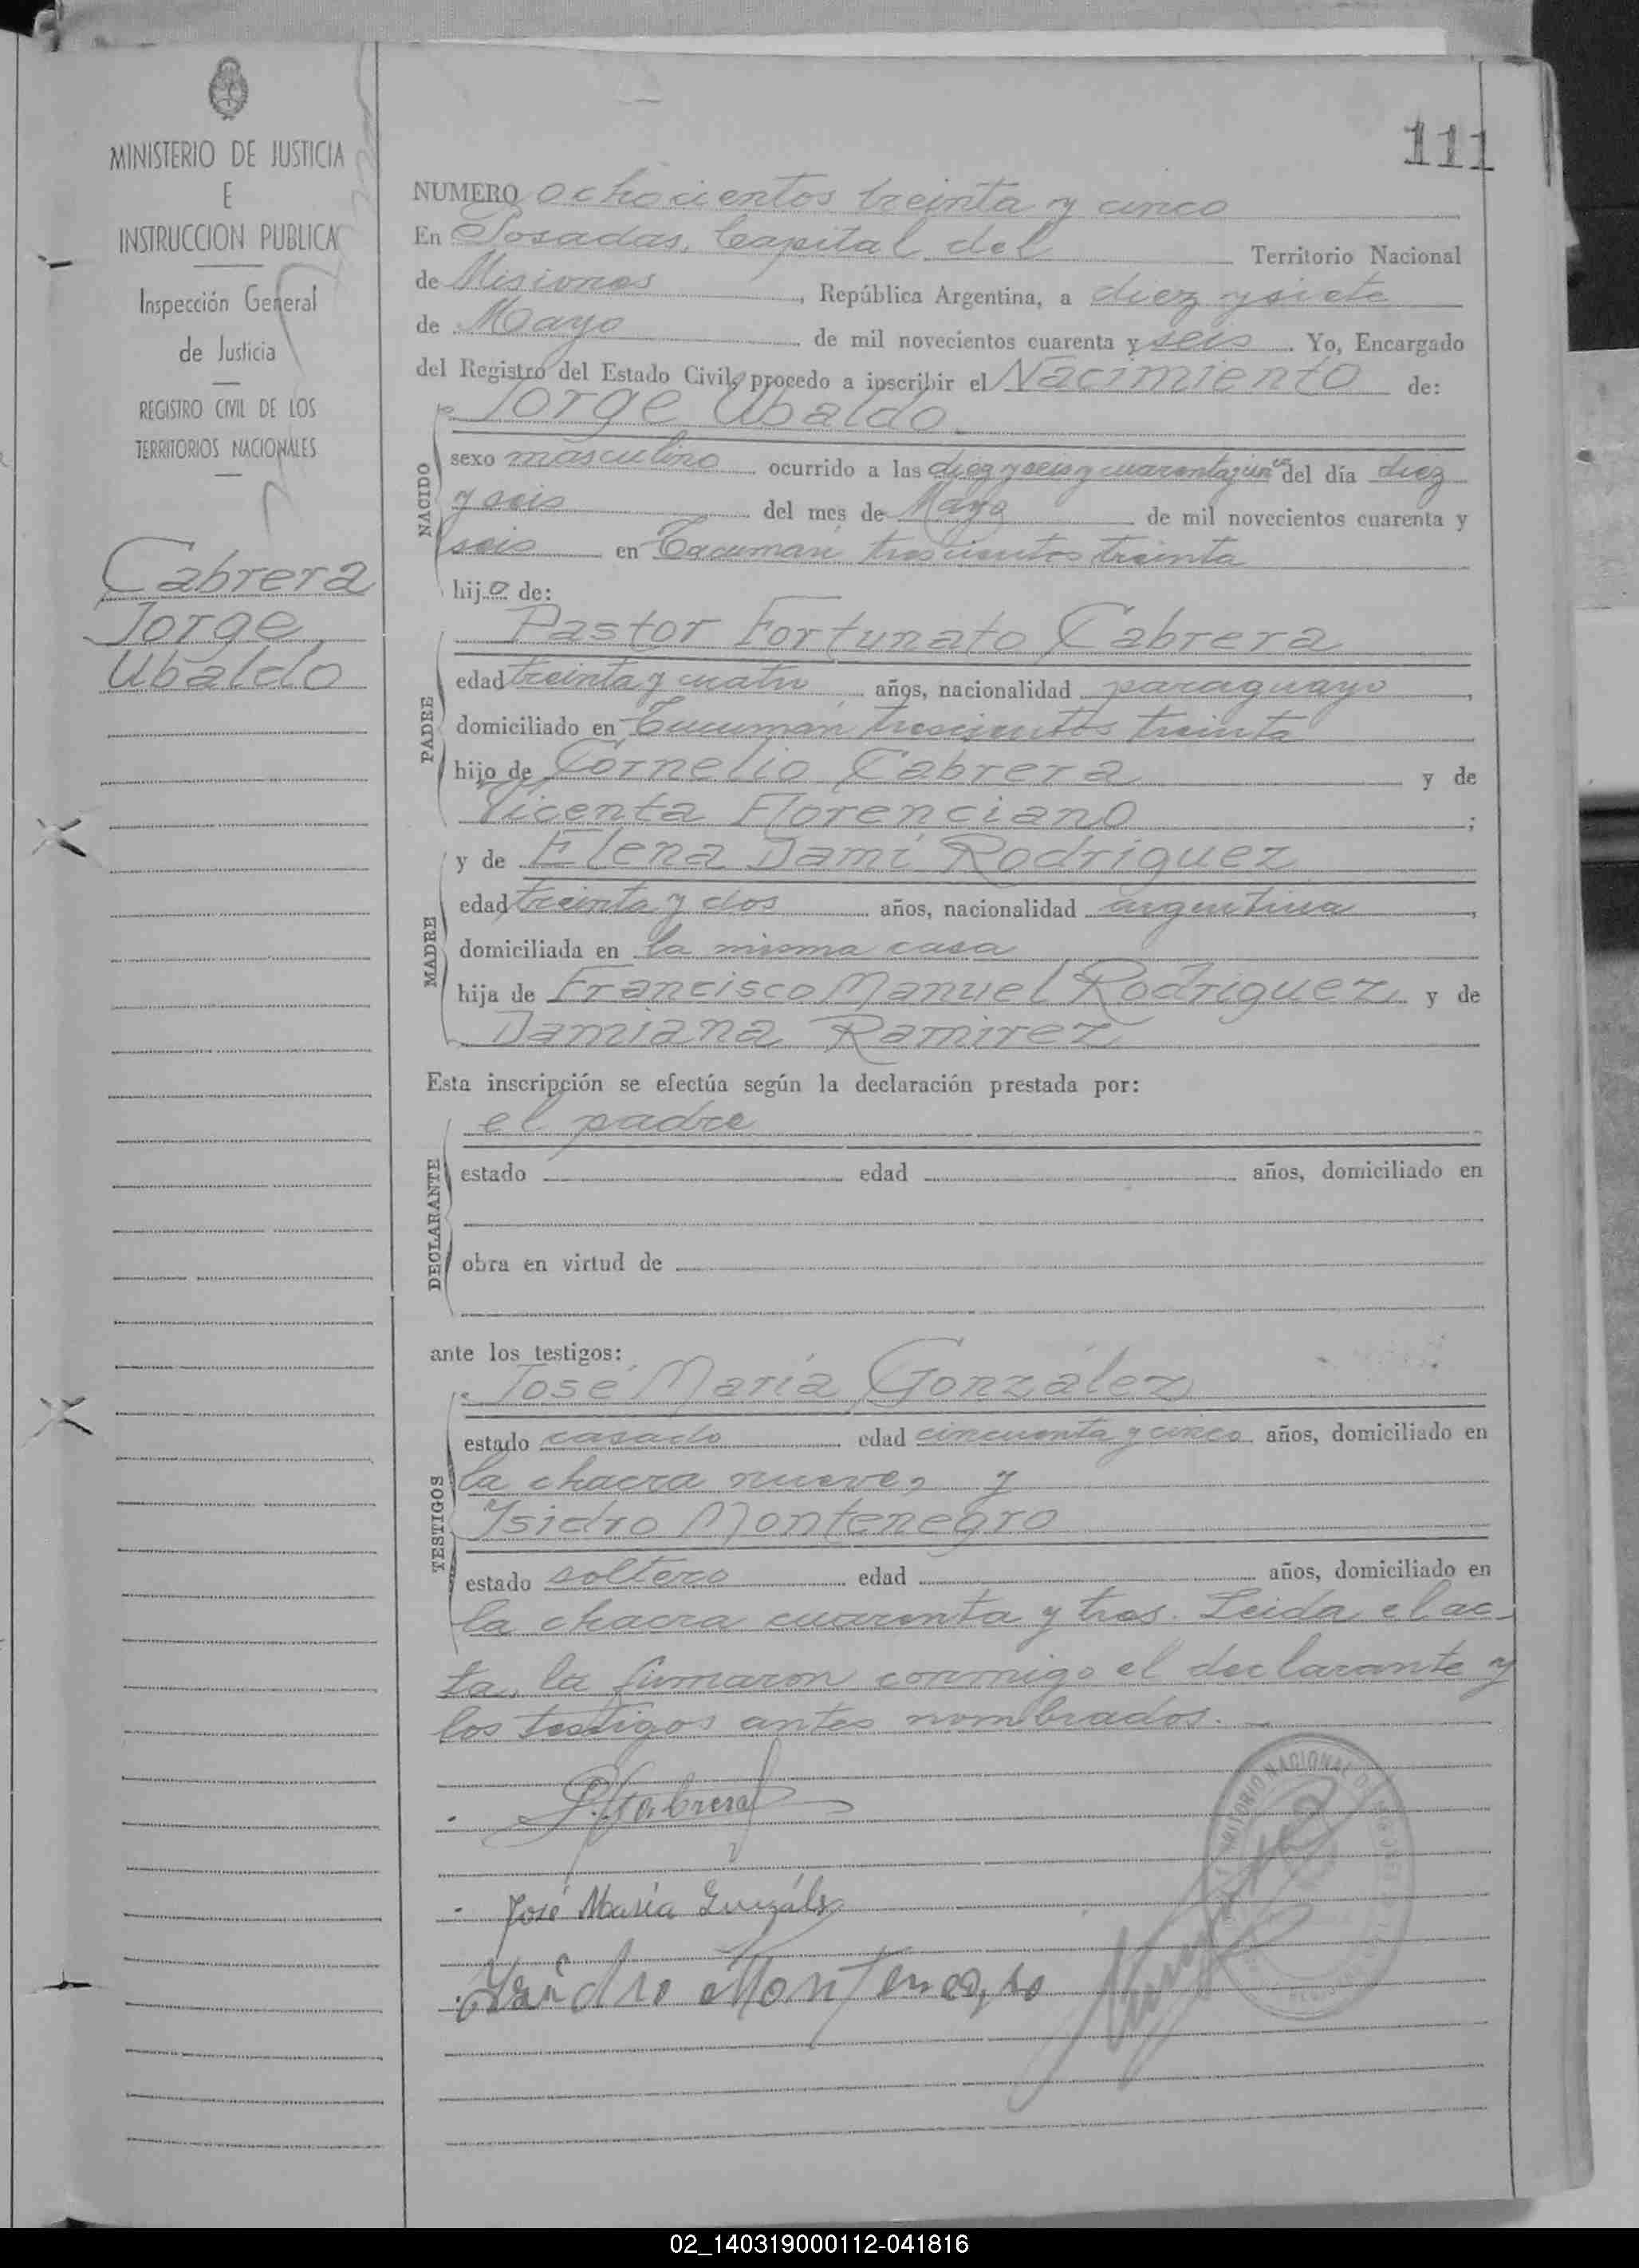 MINISTERIO DE JUSTICIA
E
INSTRUCCION PUBLICA
Inspección General
de Justicia
REGISTRO CIVIL DE LOS
TERRITORIOS NACIONALES
Cabrera
Jorge
Ubaldo
111
NUMERO ochocientos treinta y cinco
En Posadas, Capital del Territorio Nacional
de Misiones, República Argentina, a diez y siete
de Mayo de mil novecientos cuarenta y seis. Yo, Encargado
del Registro del Estado Civil, procedo a inscribir el Nacimiento de:
Jorge Ubaldo
NACIDO
sexo masculino ocurrido a las diez y seis y cuarenta y cinco del día diez
y seis del mes de Mayo de mil novecientos cuarenta y
seis en Tucumán trescientos treinta
hijo de:
Pastor Fortunato Cabrera
PADRE
edad treinta y cuatro años, nacionalidad paraguayo,
domiciliado en Tucumán trescientos treinta
hijo de Cornelio Cabrera y de
Vicenta Florenciano;
y de Elena Damí Rodriguez
MADRE
edad treinta y dos años, nacionalidad argentina,
domiciliada en la misma casa
hija de Francisco Manuel Rodriguez y de
Damiana Ramirez
Esta inscripción se efectúa según la declaración prestada por:
el padre
DECLARANTE
estado edad años, domiciliado en
obra en virtud de
ante los testigos:
José María González
TESTIGOS
estado casado edad cincuenta y cinco años, domiciliado en
la chacra nueve, y
Isidro Montenegro
estado soltero edad años, domiciliado en
la chacra cuarenta y tres. Leida el ac-
ta, la firmaron conmigo el declarante y
los testigos antes nombrados.
P. F. Cabrera
José María González
Isidro Montenegro
TERRITORIO NACIONAL DE MISIONES
02_140319000112-041816